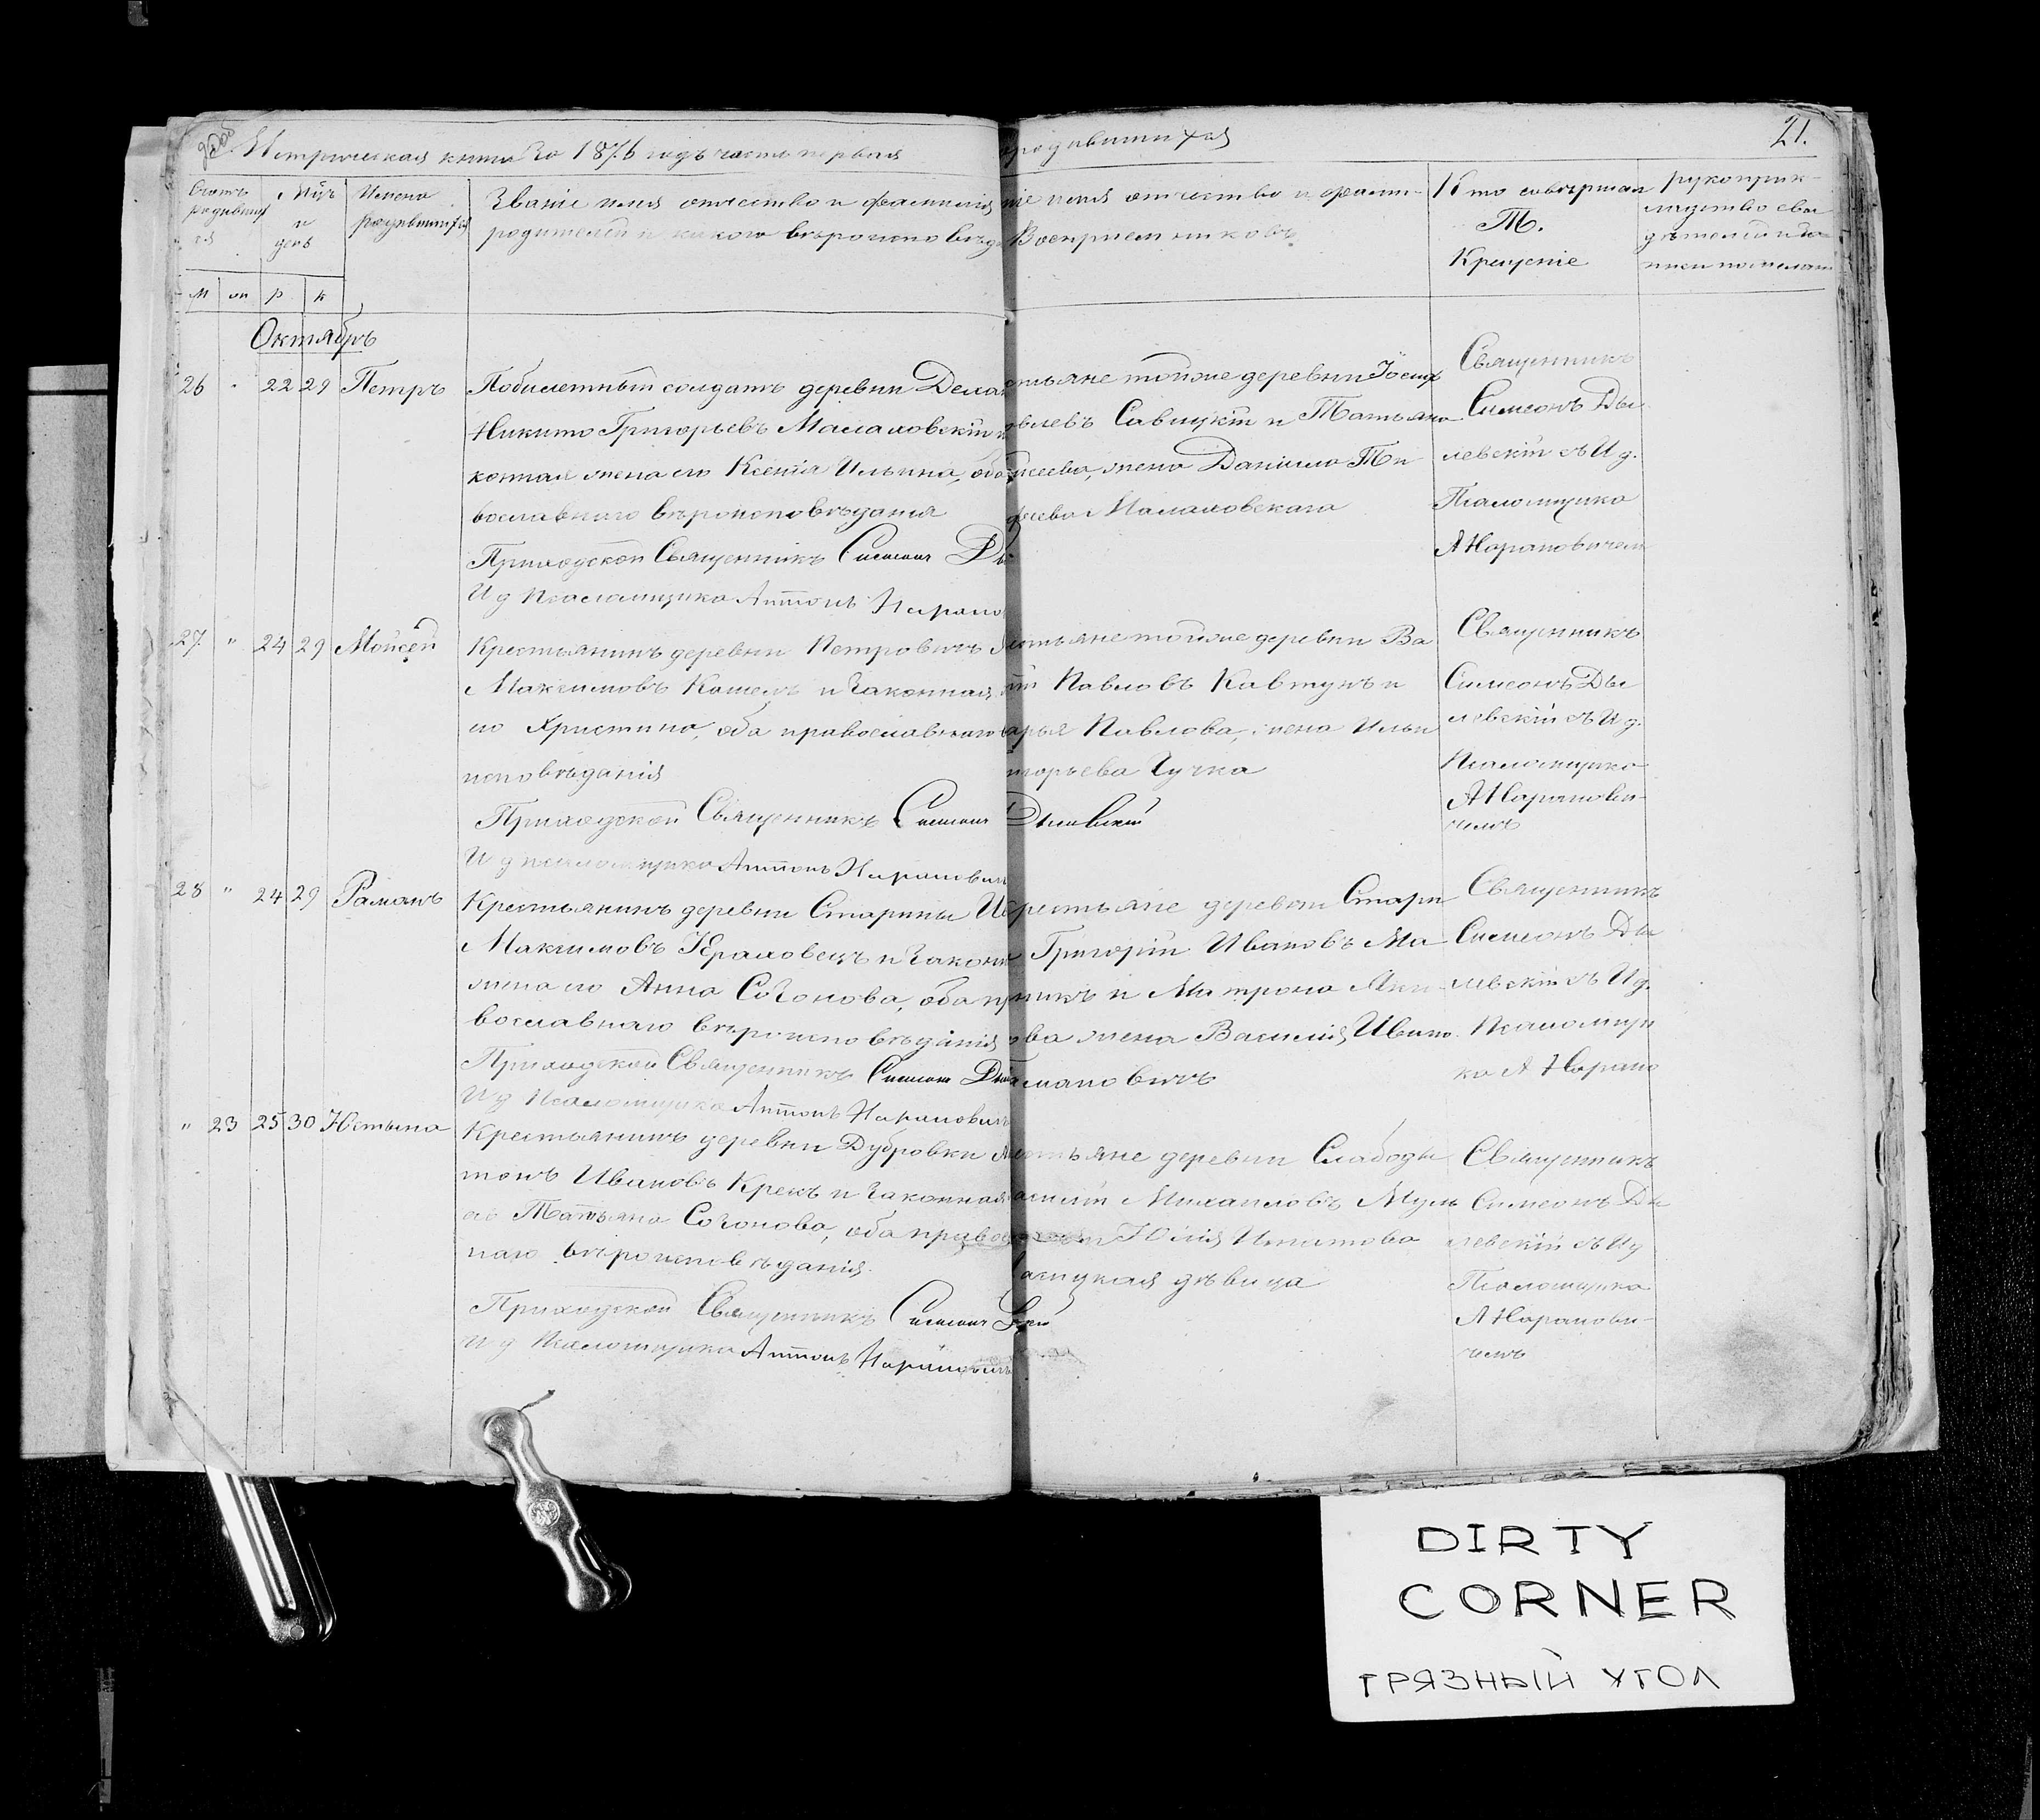 Метрическая книга за 1876 годъ часть первая
родившихся
21.
Счетъ родившихся
Мцъ и день
Имена родившихся
Званіе имя отчество и фамилія
родителей и какого вѣроисповѣд
іе имя отчество и фами-
Воспріемниковъ
Кто совершал
Т.
Крещеніе
рукоприк-
ладство сви
дѣтелей и за
писи по желан
М
ж
р
к
Октябрь
26 " 22 29 Петръ
Побилетный солдатъ деревни
Никита Григорьевъ Малаховскій
конная жена его Ксенія Ильина, оба
вославнаго вѣроисповѣданія
Приходской Священникъ Симеон
И д Псаломщика Антонъ
стьяне тойже деревни Іосиф
овлевъ Савицкій и Татьяна
жена Даніила Ти
феева Малаховскаго
Священникъ
Симеонъ Ды
левскій съ И д.
Псаломщика
27 " 24 29 Мойсей
Крестьянинъ деревни Петровичъ
Максимовъ Кошель и законная
его Христина, оба православнаго
исповѣданія
Приходской Священникъ Симеон Дылевскій
И д псаломщика Антонъ
стьяне тойже деревни Ва
ій Павловъ Кавтунъ и
арья Павлова, жена Ильи
игорьева Гучка
Священникъ
Симеонъ Ды
левскій съ И д.
Псаломщика
28 " 24 29 Раманъ
Крестьянинъ деревни Старины
Максимовъ и законн
жена его Анна Созонова, оба пр
вославнаго вѣроисповѣданія
Приходской Священникъ Симеон
И д Псаломщика Антонъ
рестьяне деревни Стари
Григорій Ивановъ Ма
никъ и Матрона Яки
ова жена Василія Ивано
мановичъ
Священникъ
Симеонъ Ды
левскій съ И д.
Псаломщи
" 23 25 30 Юстына
Крестьянинъ деревни Дубровки
тонъ Ивановъ Крекъ и законная
его Татьяна Созонова, оба правос
наго вѣроисповѣданія.
Приходской Священникъ Симеон
И д Псаломщика Антонъ
стьяне деревни Слабоды
асилій Михаиловъ Муль
Юлія Игнатова
дѣвица
Священникъ
Симеонъ Ды
левскій съ И д
Псаломщика
DIRTY
CORNER
ГРЯЗНЫЙ УГОЛ